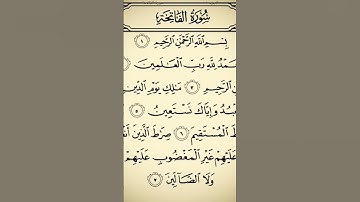 سُورَةُ الْفَاتِحَةِ
بِسْمِ ٱللَّهِ ٱلرَّحْمَٰنِ ٱلرَّحِيمِ ١
لِلَّهِ رَبِّ ٱلْعَٰلَمِينَ
ٱلرَّحِيمِ ٣ مَٰلِكِ يَوْمِ ٱلدِّينِ
وَإِيَّاكَ نَسْتَعِينُ ٥
ٱلْمُسْتَقِيمَ ٦ صِرَٰطَ ٱلَّذِينَ
عَلَيْهِمْ غَيْرِ ٱلْمَغْضُوبِ عَلَيْهِمْ
وَلَا ٱلضَّآلِّينَ ٧